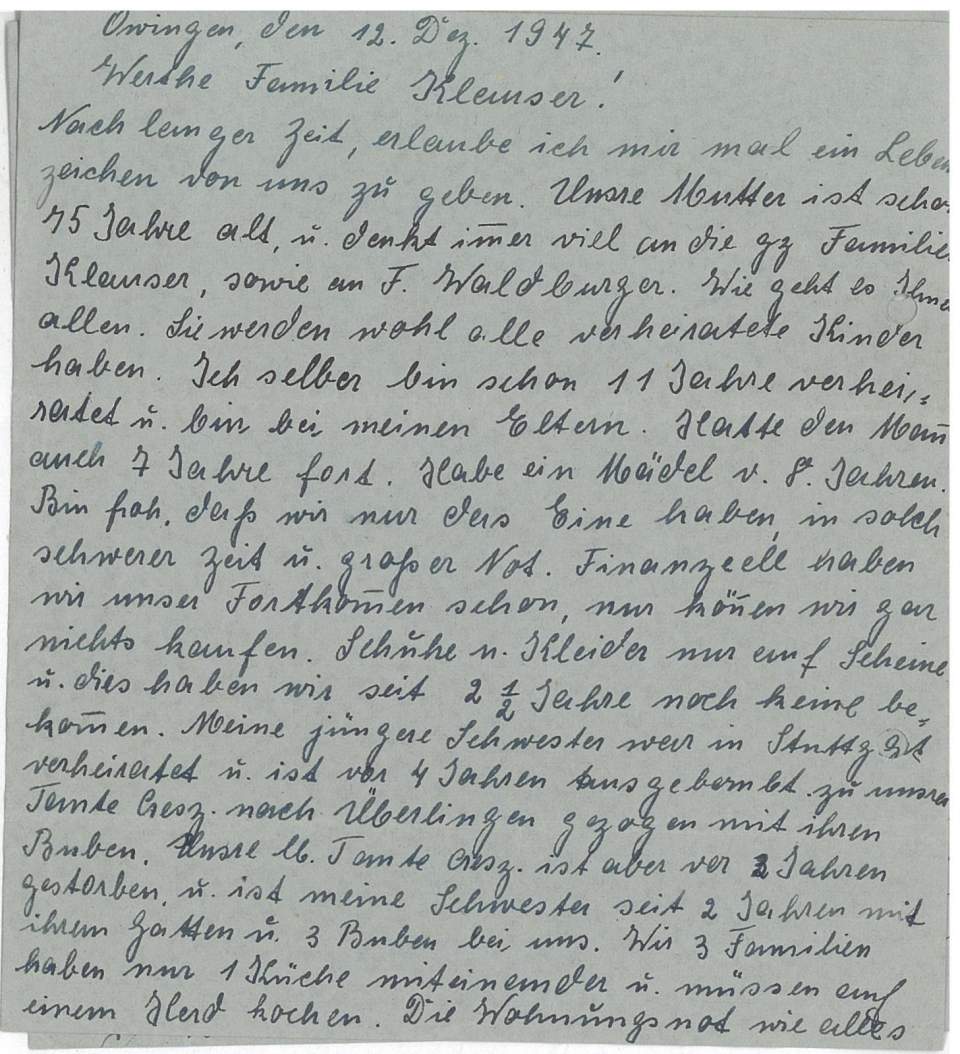 Owingen, den 12. Dez. 1947.
Werthe Familie Klauser!
Nach langer Zeit, erlaube ich mir mal ein Leben
zeichen von uns zu geben. Unsre Mutter ist scho
75 Jahre alt, u. denkt im̅er viel an die gz Familie
Klauser, sowie an F. Waldburger. Wie geht es Ihne
allen. Sie werden wohl alle verheiratete Kinder
haben. Ich selber bin schon 11 Jahre verhei=
ratet u. bin bei meinen Eltern. Hatte den Man̅
auch 7 Jahre fort. Habe ein Mädel v. 8. Jahren.
Bin froh, daß wir nur das Eine haben, in solch
schwerer Zeit u. großer Not. Finanzeell haben
wir unser Fortkom̅en schon, nur kön̅en wir gar
nichts kaufen. Schuhe u. Kleider nur auf Scheine
u. dies haben wir seit 2 ½ Jahre noch keine be=
kom̅en. Meine jüngere Schwester war in Stuttg.
verheiratet u. ist vor 4 Jahren ausgebombt zu unsrer
Tante Cresz. nach Überlingen gezogen mit ihren
Buben. Unsre lb. Tante Cresz. ist aber vor 2 Jahren
gestorben, u. ist meine Schwester seit 2 Jahren mit
ihrem Gatten u. 3 Buben bei uns. Wir 3 Familien
haben nur 1 Küche miteinander u. müssen auf
einem Herd kochen. Die Wohnungsnot wie alles